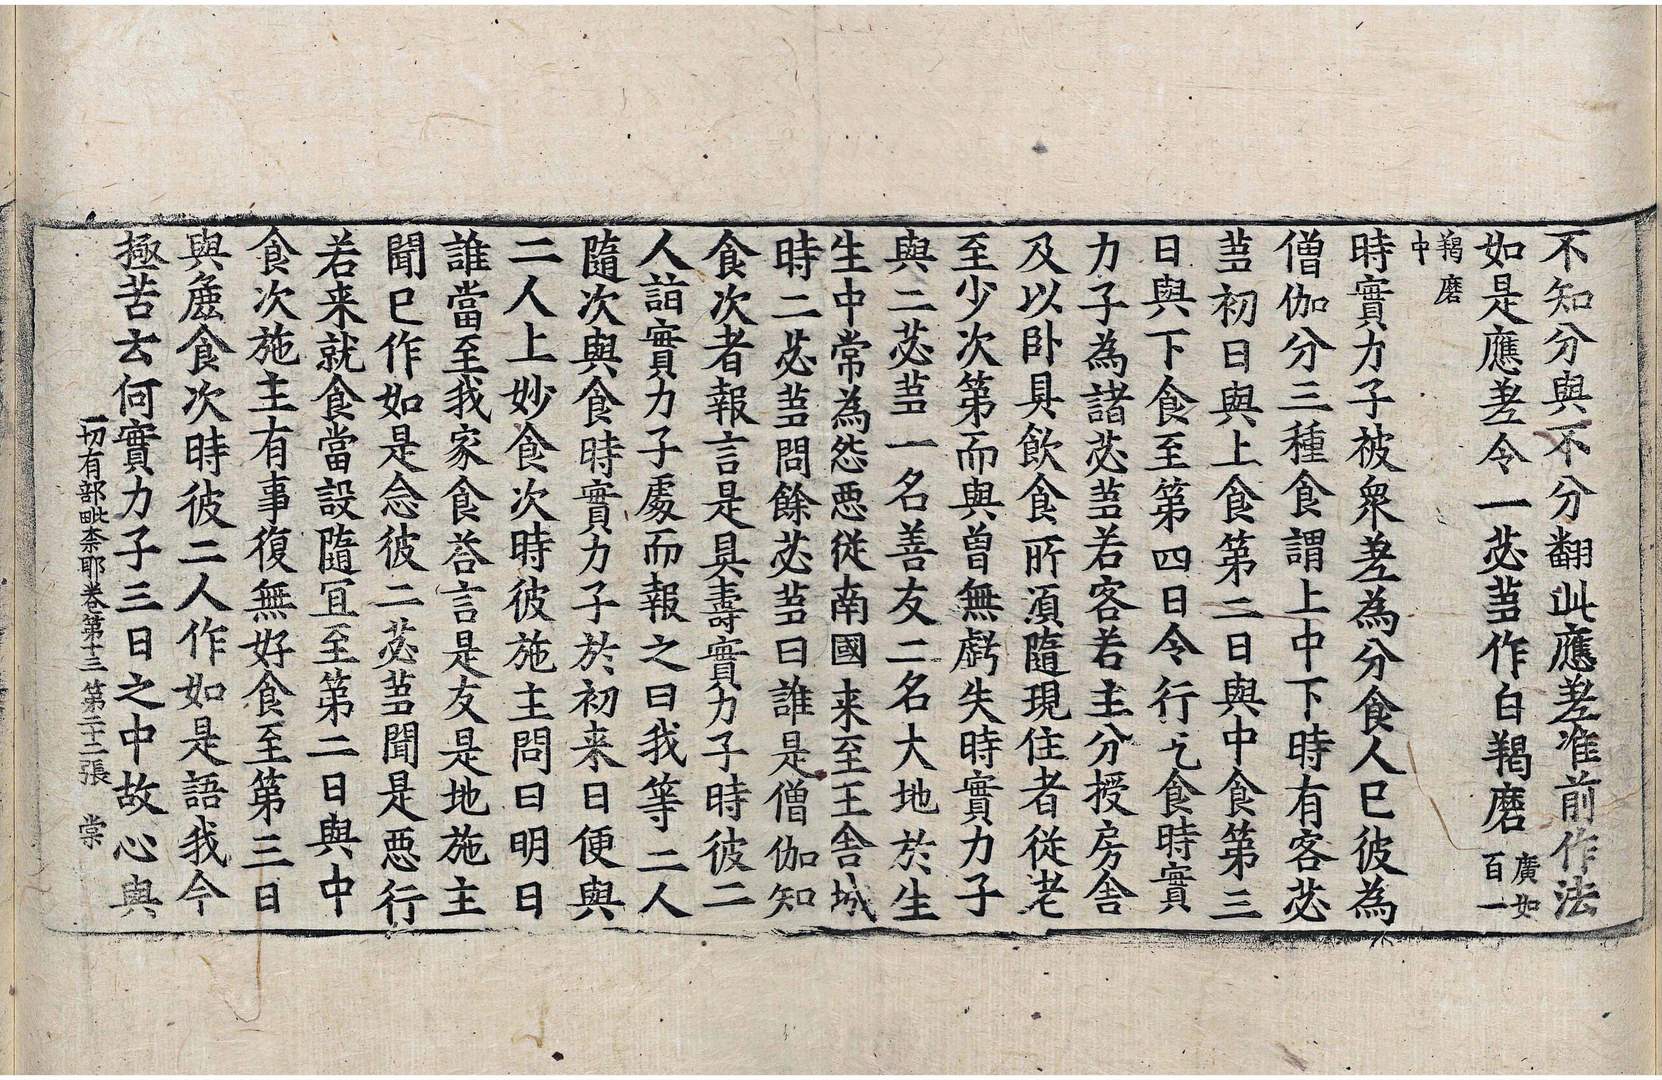 不知分與不分翻此應差准前作法
如是應差令一苾芻作白羯磨廣如百一
羯磨中
時實力子被衆差為分食人已彼為
僧伽分三種食謂上中下時有客苾
芻初日與上食第二日與中食第三
日與下食至第四日令行乞食時實
力子為諸苾芻若客若主分授房舍
及以卧具飲食所須隨現住者從老
至少次第而與曾無虧失時實力子
與二苾芻一名善友二名大地於生
生中常為怨惡從南國来至王舍城
時二苾芻問餘苾芻曰誰是僧伽知
食次者報言是具壽實力子時彼二
人詣實力子處而報之曰我等二人
隨次與食時實力子於初来日便與
二人上妙食次時彼施主問曰明日
誰當至我家食荅言是友是地施主
聞已作如是念彼二苾芻聞是惡行
若来就食當設隨冝至第二日與中
食次施主有事復無好食至第三日
與麁食次時彼二人作如是語我今
極苦去何實力子三日之中故心與
一切有部毗柰耶卷第十三 第二十二張 棠